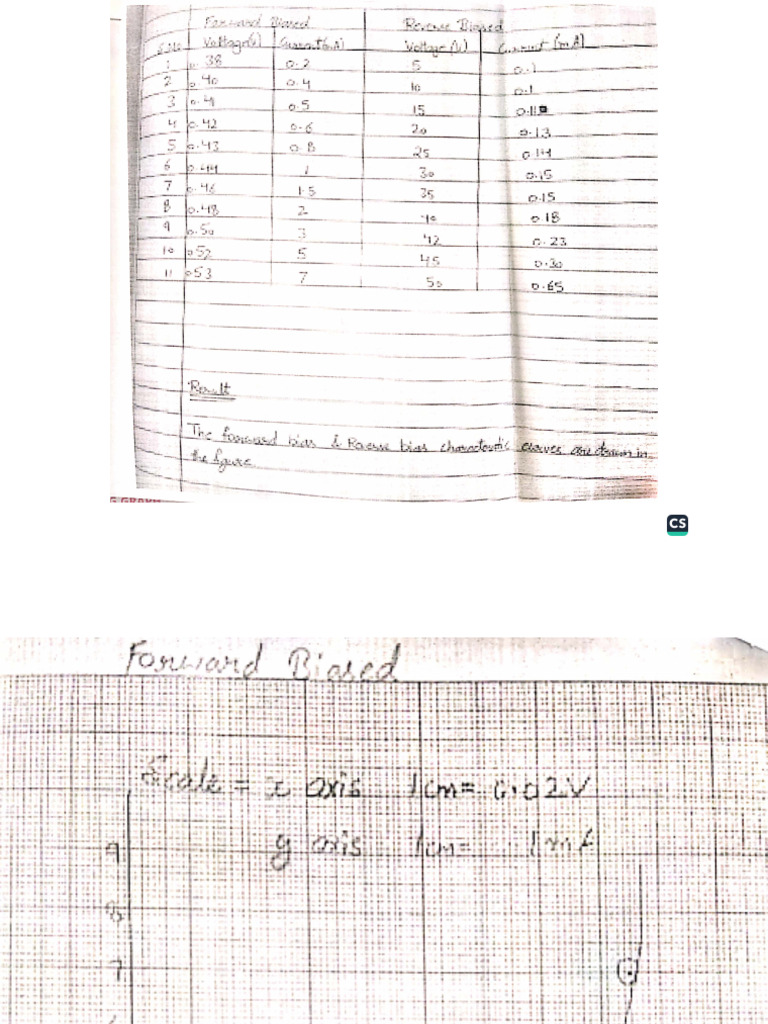 Forward Biased Reverse Biased
S.No Voltage(V) Current(mA) Voltage (V) Current (mA)
1 0.38 0.2 5 0.1
2 0.40 0.4 10 0.1
3 0.41 0.5 15 0.11
4 0.42 0.6 20 0.13
5 0.43 0.8 25 0.14
6 0.44 1 30 0.15
7 0.46 1.5 35 0.15
8 0.48 2 40 0.18
9 0.50 3 42 0.23
10 0.52 5 45 0.30
11 0.53 7 50 0.65
Result
The forward bias & Reverse bias characteristic curves are drawn in
the figure.
CS
Forward Biased
Scale = x axis 1cm = 0.02V
y axis 1cm = 1mA
9
8
7